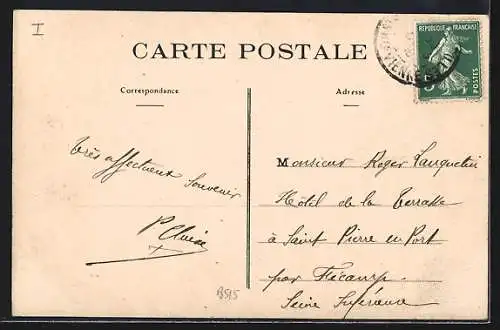 I
CARTE POSTALE
REPUBLIQUE FRANÇAISE
POSTES
Correspondance
Adresse
très affectueux souvenir
Monsieur Roger Lanquetin
Hôtel de la Terrasse
à Saint Pierre en Port
par Fécamp.
Seine Inférieure